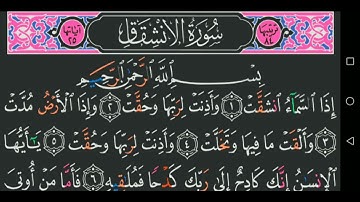 ترتيبها ٨٤ سُورَةُ الِانْشِقَاقِ آياتها ٢٥
بِسْمِ اللَّهِ الرَّحْمَٰنِ الرَّحِيمِ
إِذَا السَّمَاءُ انشَقَّتْ ١ وَأَذِنَتْ لِرَبِّهَا وَحُقَّتْ ٢ وَإِذَا الْأَرْضُ مُدَّتْ
٣ وَأَلْقَتْ مَا فِيهَا وَتَخَلَّتْ ٤ وَأَذِنَتْ لِرَبِّهَا وَحُقَّتْ ٥ يَٰٓأَيُّهَا
الْإِنسَٰنُ إِنَّكَ كَادِحٌ إِلَىٰ رَبِّكَ كَدْحًا فَمُلَٰقِيهِ ٦ فَأَمَّا مَنْ أُوتِىَ